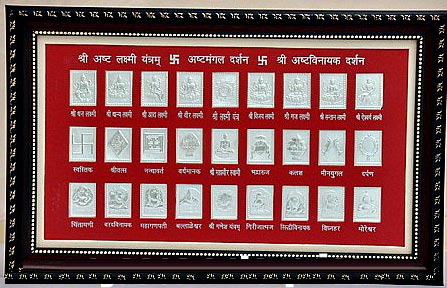 श्री अष्ट लक्ष्मी यंत्रम् 卐 अष्टमंगल दर्शन 卐 श्री अष्टविनायक दर्शन
श्री धन लक्ष्मी श्री धान्य लक्ष्मी श्री आद्य लक्ष्मी श्री वीर लक्ष्मी श्री लक्ष्मी यंत्र श्री विजय लक्ष्मी श्री गज लक्ष्मी श्री सन्तान लक्ष्मी श्री ऐश्वर्य लक्ष्मी
स्वस्तिक श्रीवत्स नन्द्यावर्त वर्धमानक श्री महावीर स्वामी भद्रासन कलश मीनयुगल दर्पण
चिंतामणी वरदविनायक महागणपती बल्लाळेश्वर श्री गणेश यंत्रम् गिरीजात्मज सिध्दीविनायक विघ्नहर मोरेश्वर